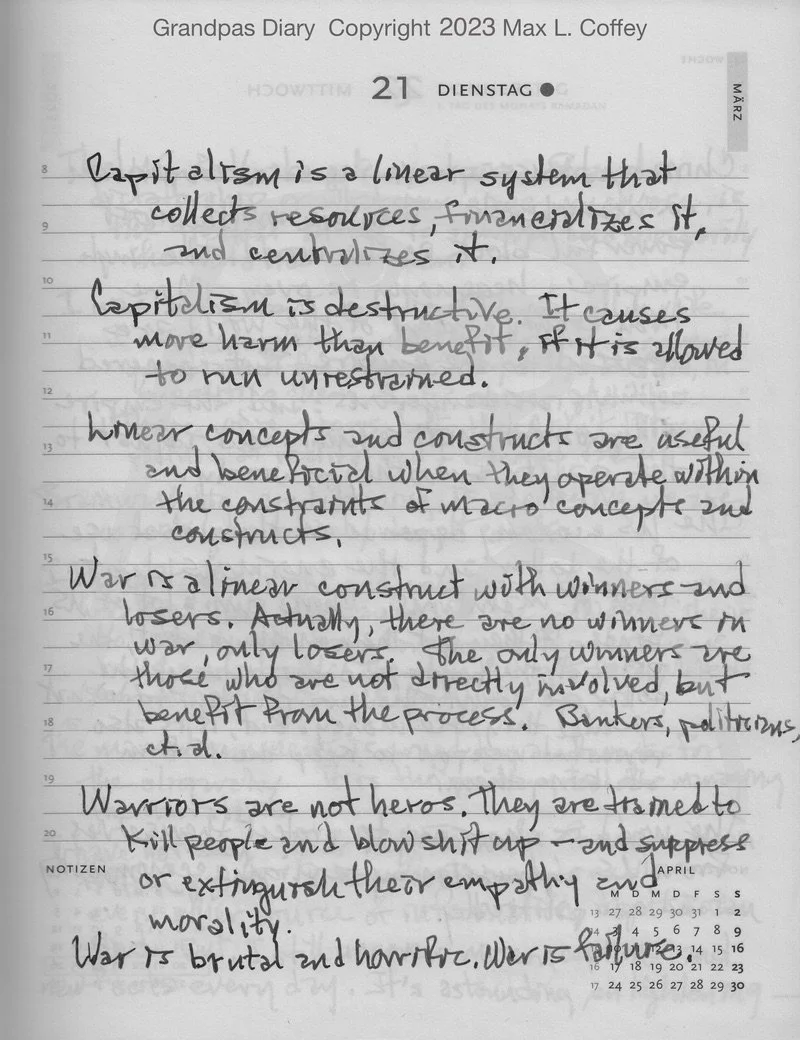 Grandpas Diary Copyright 2023 Max L. Coffey
21 DIENSTAG
MÄRZ
8
Capitalism is a linear system that
collects resources, financializes it,
9
and centralizes it.
10
Capitalism is destructive. It causes
11
more harm than benefit, if it is allowed
to run unrestrained.
12
Linear concepts and constructs are useful
13
and beneficial when they operate within
14
the constraints of macro concepts and
constructs.
15
War is a linear construct with winners and
16
losers. Actually, there are no winners in
war, only losers. The only winners are
17
those who are not directly involved, but
benefit from the process. Bankers, politicians,
18
et.al.
19
Warriors are not heros. They are trained to
20
kill people and blow shit up – and suppress
NOTIZEN
or extinguish their empathy and
morality.
War is brutal and horrific. War is failure.
APRIL
M D M D F S S
13 27 28 29 30 31 1 2
14 3 4 5 6 7 8 9
13 14 15 16
16 17 18 19 20 21 22 23
17 24 25 26 27 28 29 30